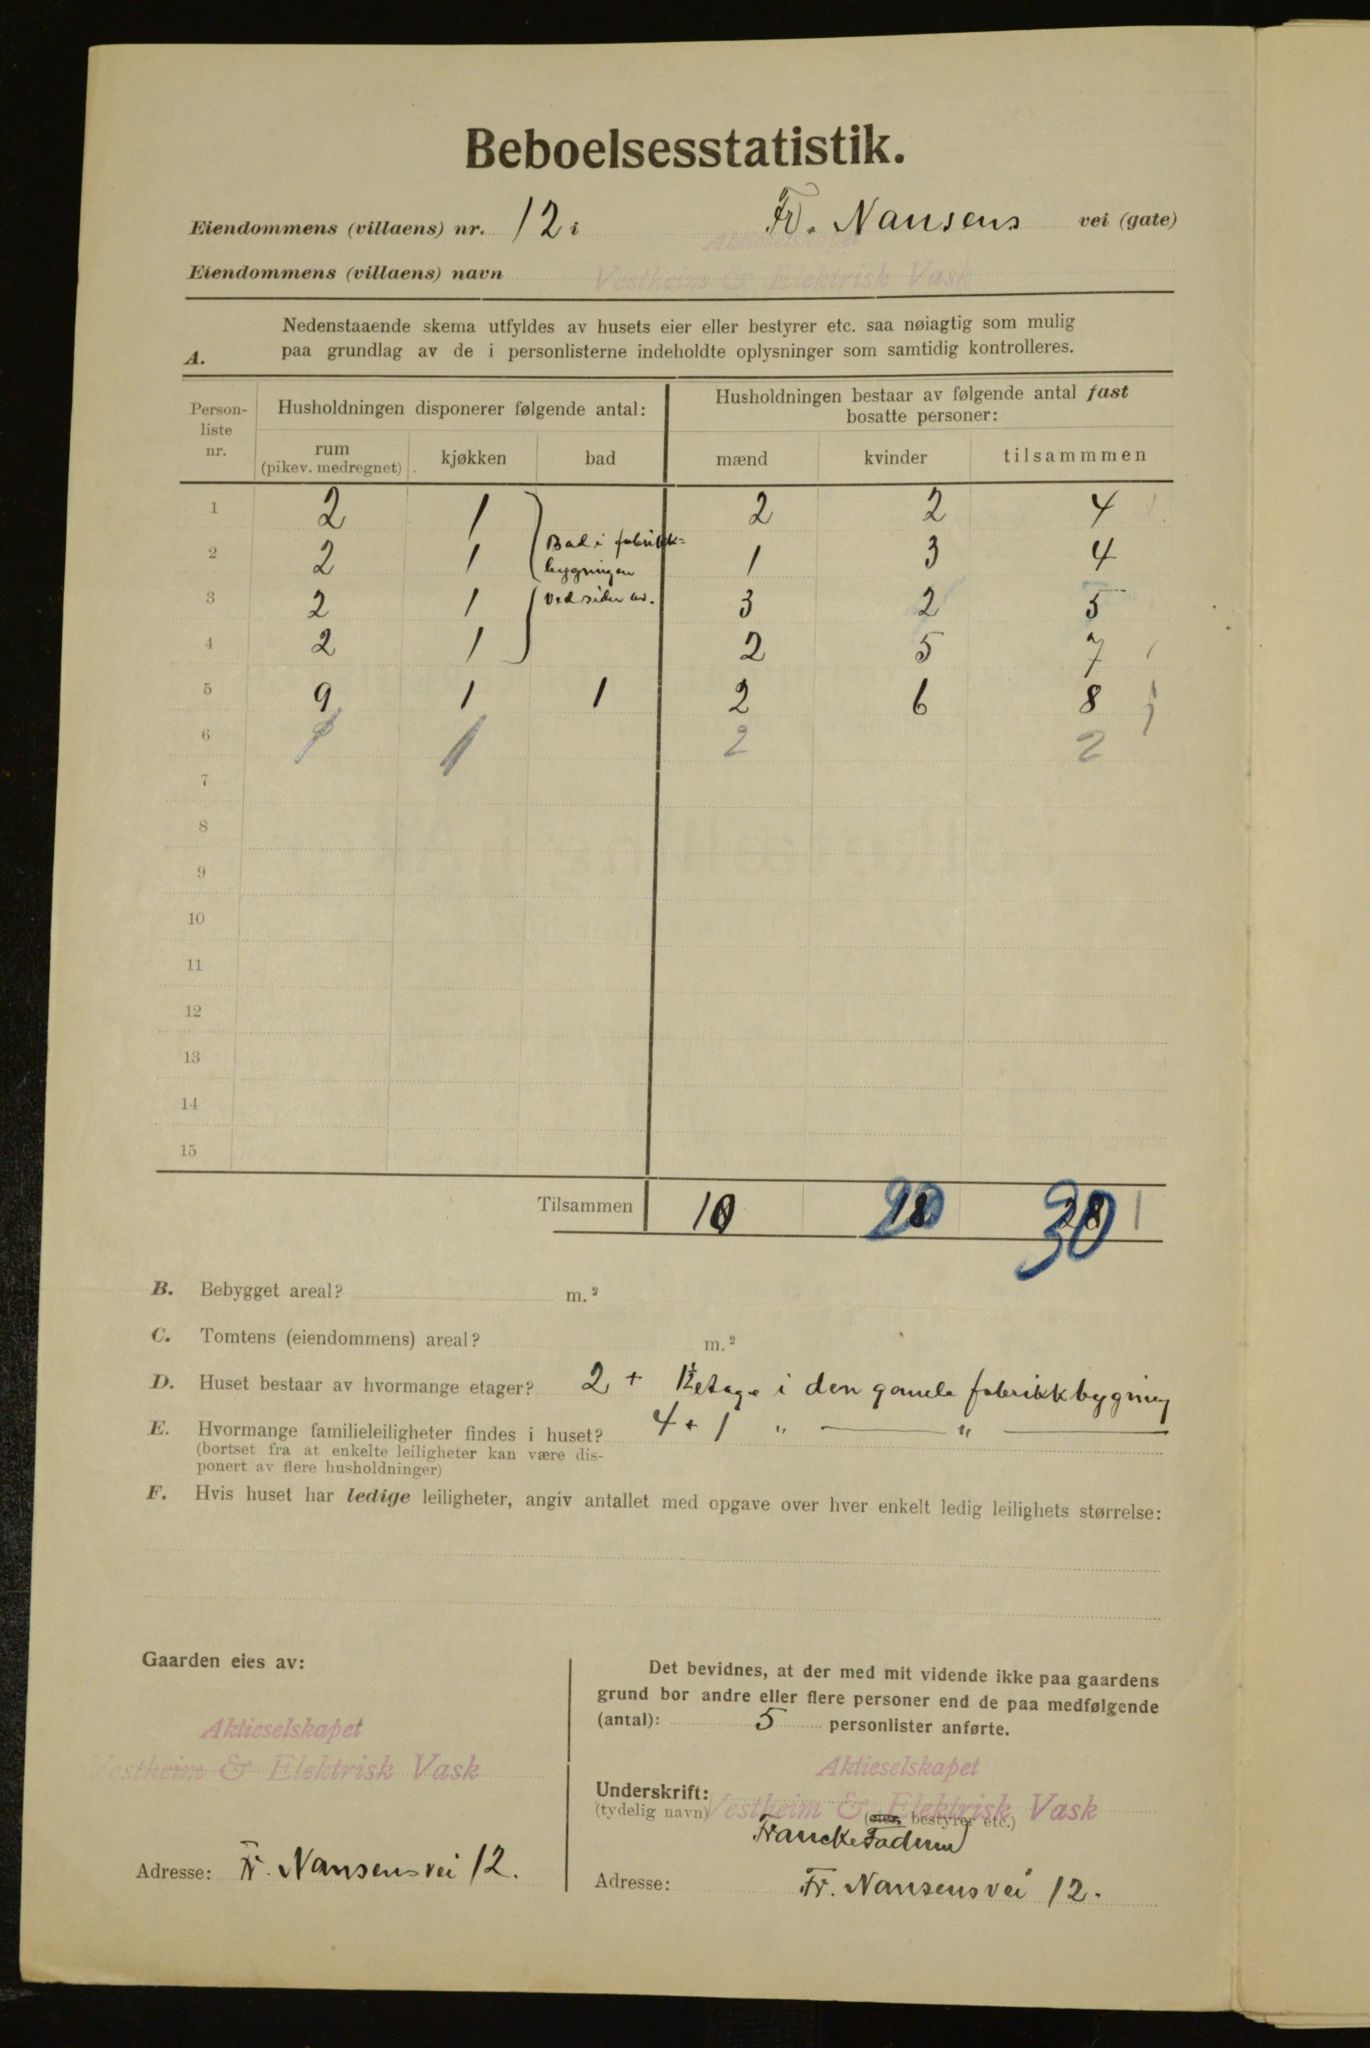 Beboelsesstatistik.
Eiendommens (villaens) nr. 12 i Fr. Nansens vei (gate)
Aktieselskapet
Eiendommens (villaens) navn Vestheim & Elektrisk Vask
Nedenstaaende skema utfyldes av husets eier eller bestyrer etc. saa nøiagtig som mulig
A. paa grundlag av de i personlisterne indeholdte oplysninger som samtidig kontrolleres.
Person-liste nr. Husholdningen disponerer følgende antal: Husholdningen bestaar av følgende antal fast bosatte personer:
rum (pikev. medregnet) kjøkken bad mænd kvinder tilsammmen
1 2 1 2 2 4
2 2 1 Bad i fabrikk= bygningen 1 3 4
3 2 1 ved siden av. 3 2 5
4 2 1 2 5 7
5 9 1 1 2 6 8
6 1 1 2 2
7
8
9
10
11
12
13
14
15
Tilsammen 10 18 20 28 30
B. Bebygget areal? m.²
C. Tomtens (eiendommens) areal? m.²
D. Huset bestaar av hvormange etager? 2 + 1½ etage i den gamle fabrikkbygning
E. Hvormange familieleiligheter findes i huset? 4 + 1 " — " —
(bortset fra at enkelte leiligheter kan være dis-
ponert av flere husholdninger)
F. Hvis huset har ledige leiligheter, angiv antallet med opgave over hver enkelt ledig leilighets størrelse:
Gaarden eies av:
Aktieselskapet
Vestheim & Elektrisk Vask
Adresse: Fr. Nansensvei 12.
Det bevidnes, at der med mit vidende ikke paa gaardens
grund bor andre eller flere personer end de paa medfølgende
(antal): 5 personlister anførte.
Aktieselskapet
Underskrift: Vestheim & Elektrisk Vask
(tydelig navn) (eier, bestyrer etc.)
Francke Fadum
Adresse: Fr. Nansensvei 12.